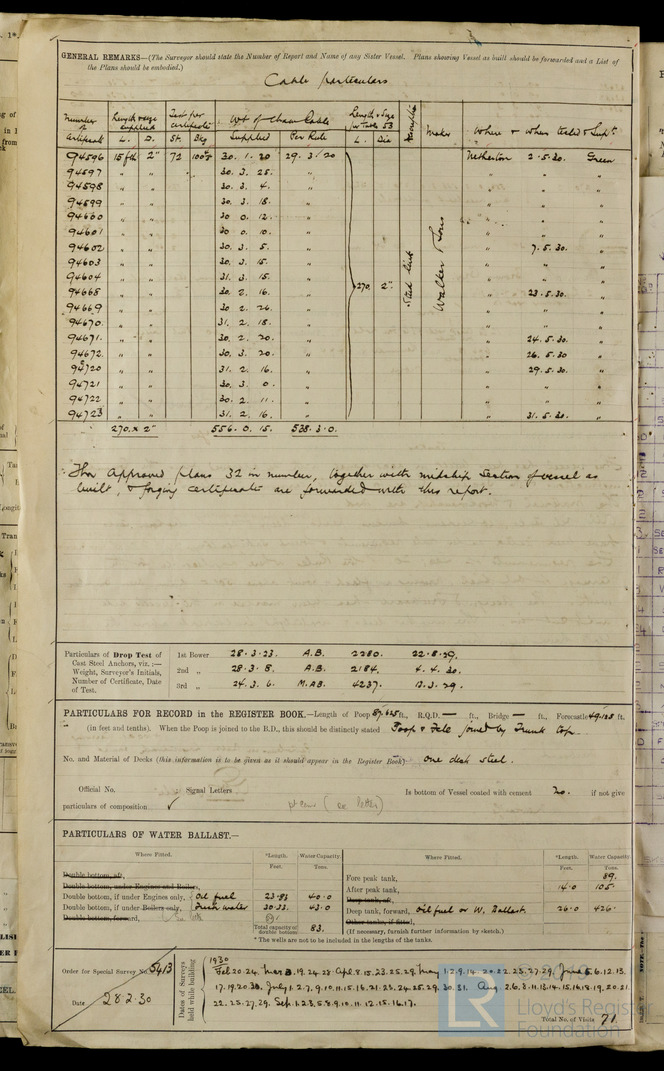 GENERAL REMARKS—(The Surveyor should state the Number of Report and Name of any Sister Vessel. Plans showing Vessel as built should be forwarded and a List of
the Plans should be embodied.)
Cable particulars
Number of Certificate Length & size supplied Test per certificate Wt of Chain Cable Length & Size per Table 53 Maker Where & when tested & Supt
L. D. St. Bkg Supplied Per Rule L. Dia
94596 15 fth 2" 72 30. 1. 20 29. 3. 20 Netherton 2.5.30. Green
94597 " " 30. 3. 25. " " " "
94598 " " 30. 3. 4. " " " "
94599 " " 30. 3. 18. " " " "
94600 " " 30 0. 12. " " " "
94601 " " 30 0. 10. " " " "
94602 " " 30. 3. 5. " " 7.5.30. "
94603 " " 30. 3. 15. " " " "
94604 " " 31. 3. 15. " 270 2" Stud link Walker & Sons " " "
94668 " " 30. 2. 16. " " 23.5.30. "
94669 " " 30 2. 26. " " " "
94670. " " 31. 2. 18. " " " "
94671. " " 30. 2. 20. " " 24.5.30. "
94672. " " 30. 3. 20. " " 26.5.30 "
94720 " " 31. 2. 16. " " 29.5.30. "
94721 " " 30. 3. 0. " " " "
94722 " " 30. 2. 11. " " " "
94723 " " 31. 2. 16. " " 31.5.30. "
270 x 2" 556. 0. 15. 538. 3. 0.
The approved plans 32 in number, together with midship section of vessel as
built, & forging certificate are forwarded with this report.
Particulars of Drop Test of Cast Steel Anchors, viz.:— Weight, Surveyor's Initials, Number of Certificate, Date of Test.
1st Bower 28.3.23. A.B. 2280. 22.8.29.
2nd " 28.3.8. A.B. 2184. 4.4.30.
3rd " 24.3.6. M.AB. 4237. 13.3.29.
PARTICULARS FOR RECORD in the REGISTER BOOK.—Length of Poop 87.625 ft., R.Q.D. — ft., Bridge — ft., Forecastle 49.125 ft.
(in feet and tenths). When the Poop is joined to the B.D., this should be distinctly stated Poop & Fcle joined by Trunk top.
No. and Material of Decks (this information is to be given as it should appear in the Register Book) one deck steel.
Official No. Signal Letters Is bottom of Vessel coated with cement no. if not give
particulars of composition ✓ pt cem (see letter)
PARTICULARS OF WATER BALLAST.—
Where Fitted. *Length. Water Capacity. Where Fitted. *Length. Water Capacity.
Feet. Tons. Feet. Tons.
Double bottom, aft, Fore peak tank, 89.
Double bottom, under Engines and Boilers, After peak tank, 14.0 105.
Double bottom, if under Engines only, Oil fuel 23.83 40.0 Deep tank, aft,
Double bottom, if under Boilers only, Fresh water 30.33. 43.0 Deep tank, forward, Oil fuel or W. Ballast. 26.0 426.
Double bottom, forward, Other tanks, if fitted,
Total capacity of double bottom 83. (If necessary, furnish further information by sketch.)
* The wells are not to be included in the lengths of the tanks.
Order for Special Survey No. 5413
Date 28.2.30
Dates of Surveys held while building
1930
Feb. 20. 24. Mar. 13. 19. 24. 28. Apr. 8. 15. 23. 25. 29. May 1. 2. 9. 14. 20. 22. 23. 27. 29. June 5. 6. 12. 13.
17. 19. 20. 30. July 1. 2. 7. 9. 10. 11. 15. 16. 21. 23. 24. 25. 29. 30. 31. Aug. 2. 6. 8. 11. 13. 14. 15. 16. 18. 19. 20. 21.
22. 25. 27. 29. Sep. 1. 2. 3. 5. 8. 9. 10. 11. 12. 15. 16. 17.
Total No. of Visits 71
LR
Lloyd's Register
Foundation